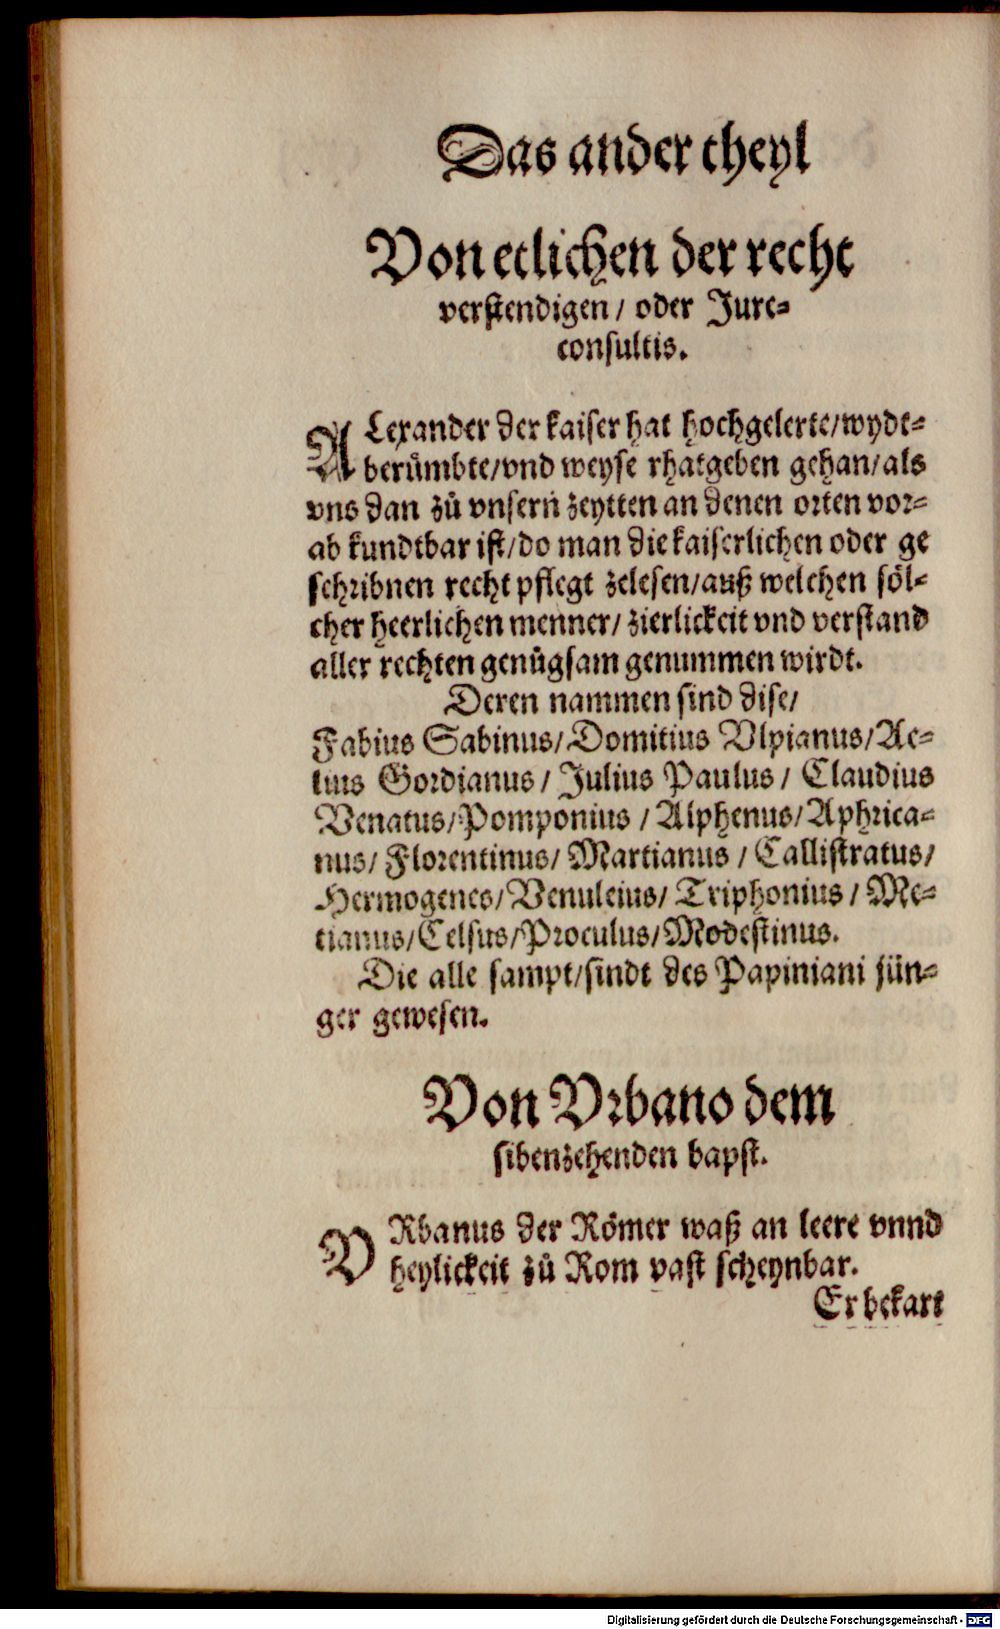 Das ander theyl
Von etlichen der recht
verstendigen / oder Jure⸗
consultis.
ALexander der kaiser hat hochgelerte/wydt⸗
berümbte/vnd weyse rhatgeben gehan/als
vns dan zů vnsern zeytten an denen orten vor⸗
ab kundtbar ist/do man die kaiserlichen oder ge
schribnen recht pflegt zelesen/auß welchen söl⸗
cher heerlichen menner/ zierlickeit vnd verstand
aller rechten genůgsam genummen wirdt.
Deren nammen sind dise/
Fabius Sabinus/Domitius Vlpianus/Ae⸗
lius Gordianus / Julius Paulus / Claudius
Venatus/Pomponius / Alphenus/Aphrica⸗
nus/ Florentinus/ Martianus / Callistratus/
Hermogenes/Venuleius/ Triphonius / Me⸗
tianus/Celsus/Proculus/Modestinus.
Die alle sampt/sindt des Papiniani jün⸗
ger gewesen.
Von Vrbano dem
sibenzehenden bapst.
VRbanus der Römer waß an leere vnnd
heylickeit zů Rom vast scheynbar.
Er bekart
Digitalisierung gefördert durch die Deutsche Forschungsgemeinschaft - DFG